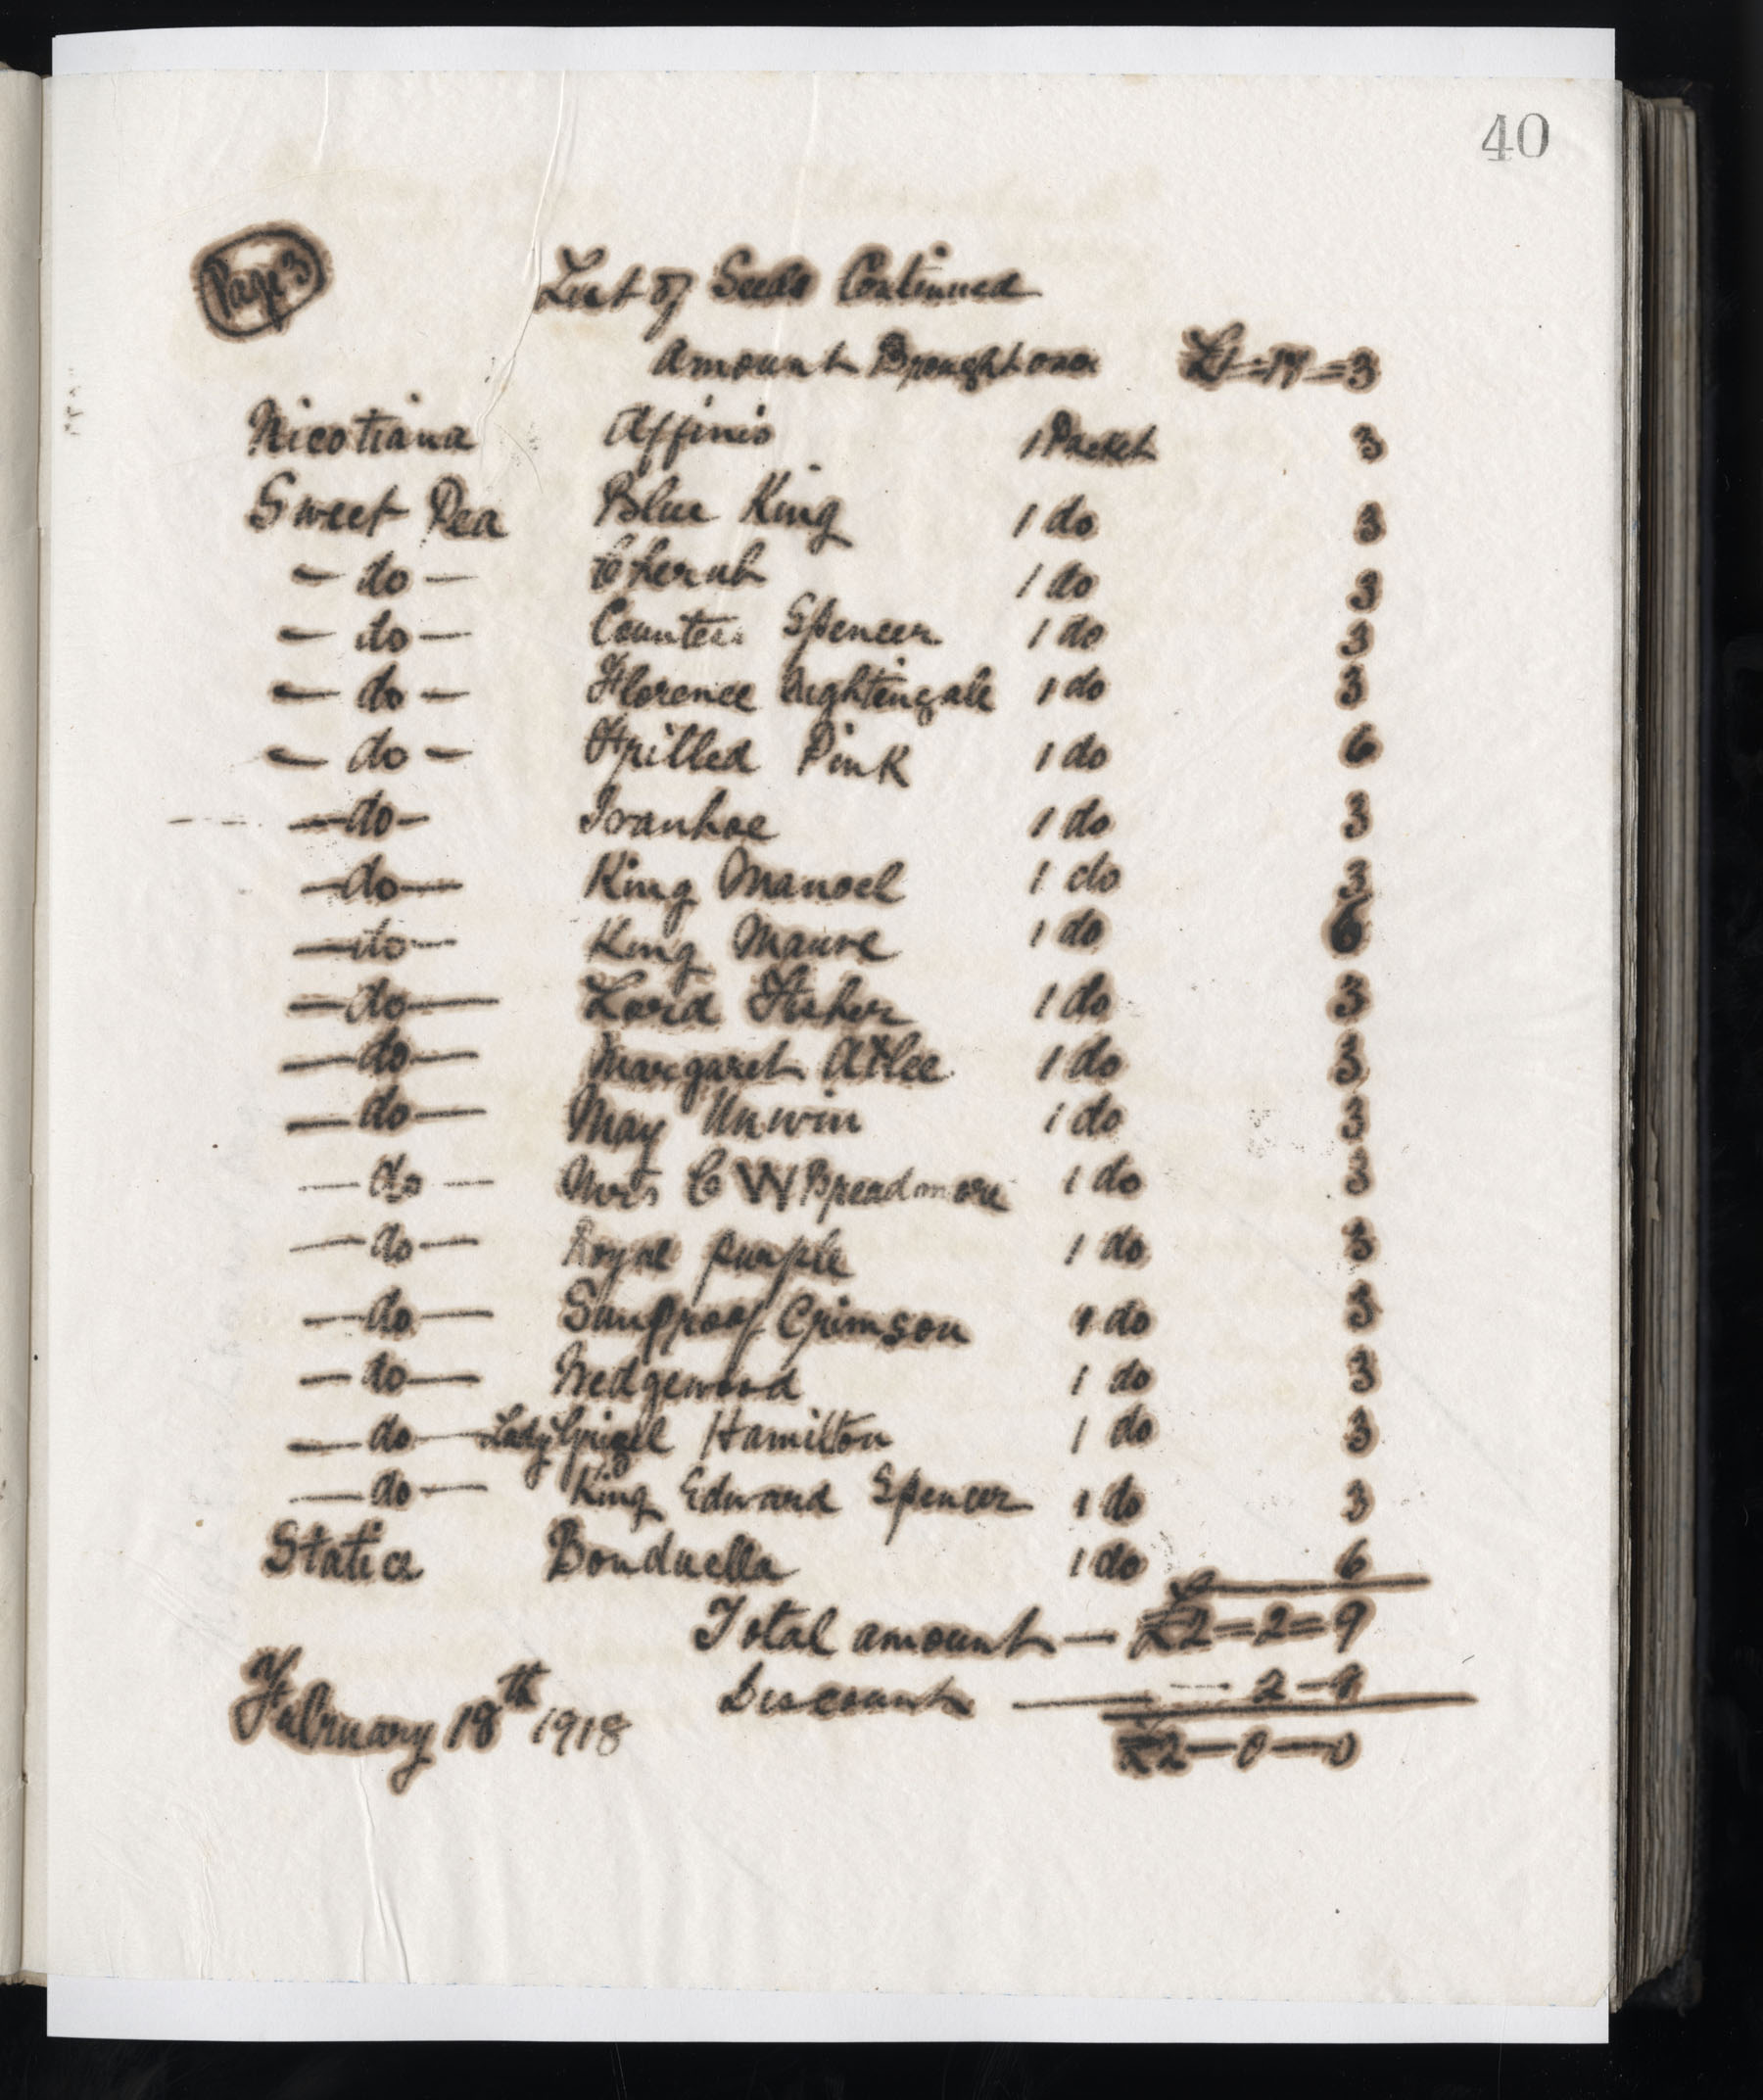 40
Page 3
List of Seeds Continued
Amount Brought over £1=17=3
Nicotiana Affinis 1 Packet 3
Sweet Pea Blue King 1 do 3
— do — Cherub 1 do 3
— do — Countess Spencer 1 do 3
— do — Florence Nightingale 1 do 3
— do — Frilled Pink 1 do 6
— do — Ivanhoe 1 do 3
— do — King Manoel 1 do 3
— do — King Mauve 1 do 6
— do — Lord Fisher 1 do 3
— do — Margaret Atlee 1 do 3
— do — May Unwin 1 do 3
— do — Mrs C W Breadmore 1 do 3
— do — Royal purple 1 do 3
— do — Sunproof Crimson 1 do 3
— do — Wedgewood 1 do 3
— do — Lady Grizel Hamilton 1 do 3
— do — King Edward Spencer 1 do 3
Statice Bonduella 1 do 6
Total amount — £2=2=9
Discount — 2-9
February 18th 1918
£2—0—0